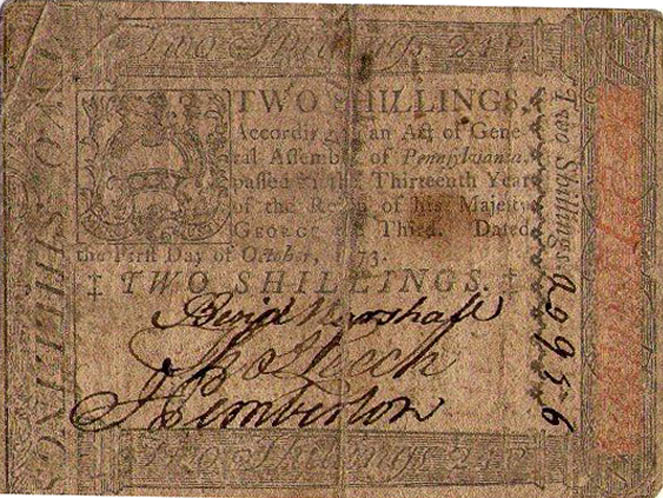 Two Shillings. 24 P.
TWO SHILLINGS.
According to an Act of Gene-
ral Assembly of Pennsylvania,
passed in the Thirteenth Year
of the Reign of his Majesty
GEORGE the Third. Dated
the First Day of October, 1773.
‡ TWO SHILLINGS. ‡
Benja Marshall
Pemberton
Two Shillings 24 P.
TWO SHILLINGS
Two Shillings.